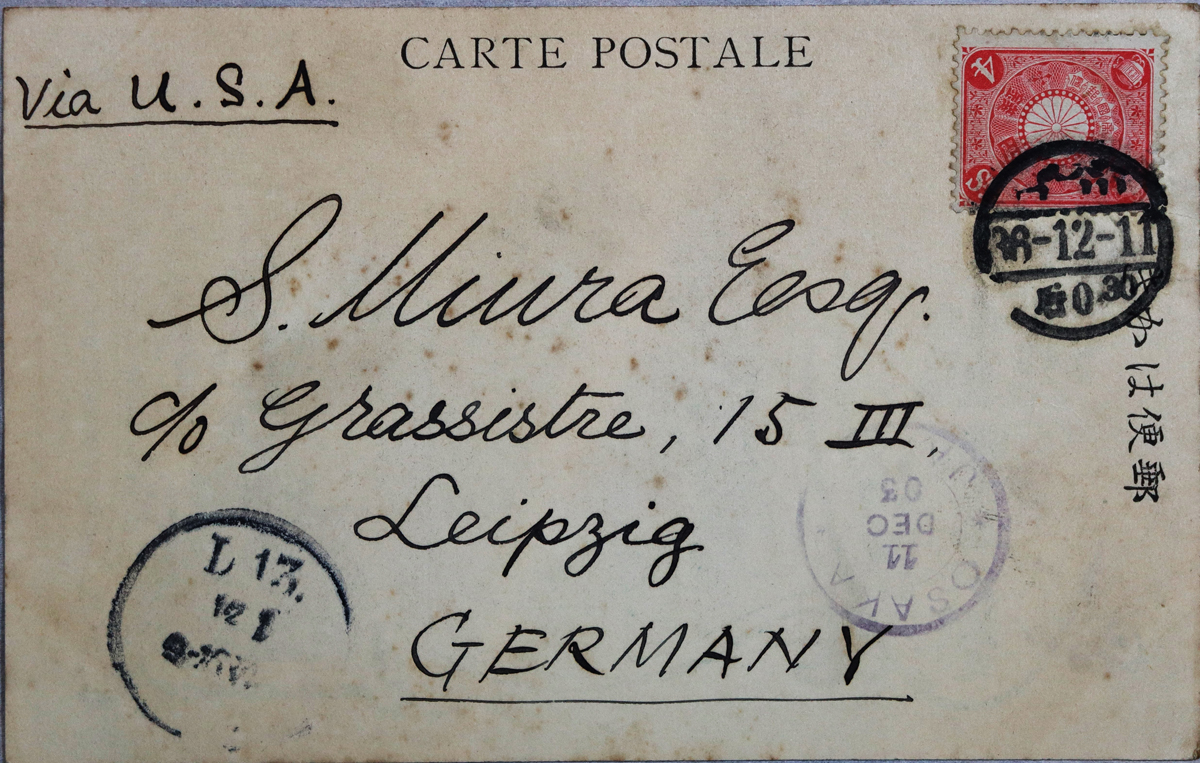 CARTE POSTALE
Via U.S.A.
4
S. Miura Esq.
c/o Grassistre, 15 III,
Leipzig
GERMANY
36-12-11
后0.30
郵便はか
OSAKA
11
DEC
03
L 13.
12 1